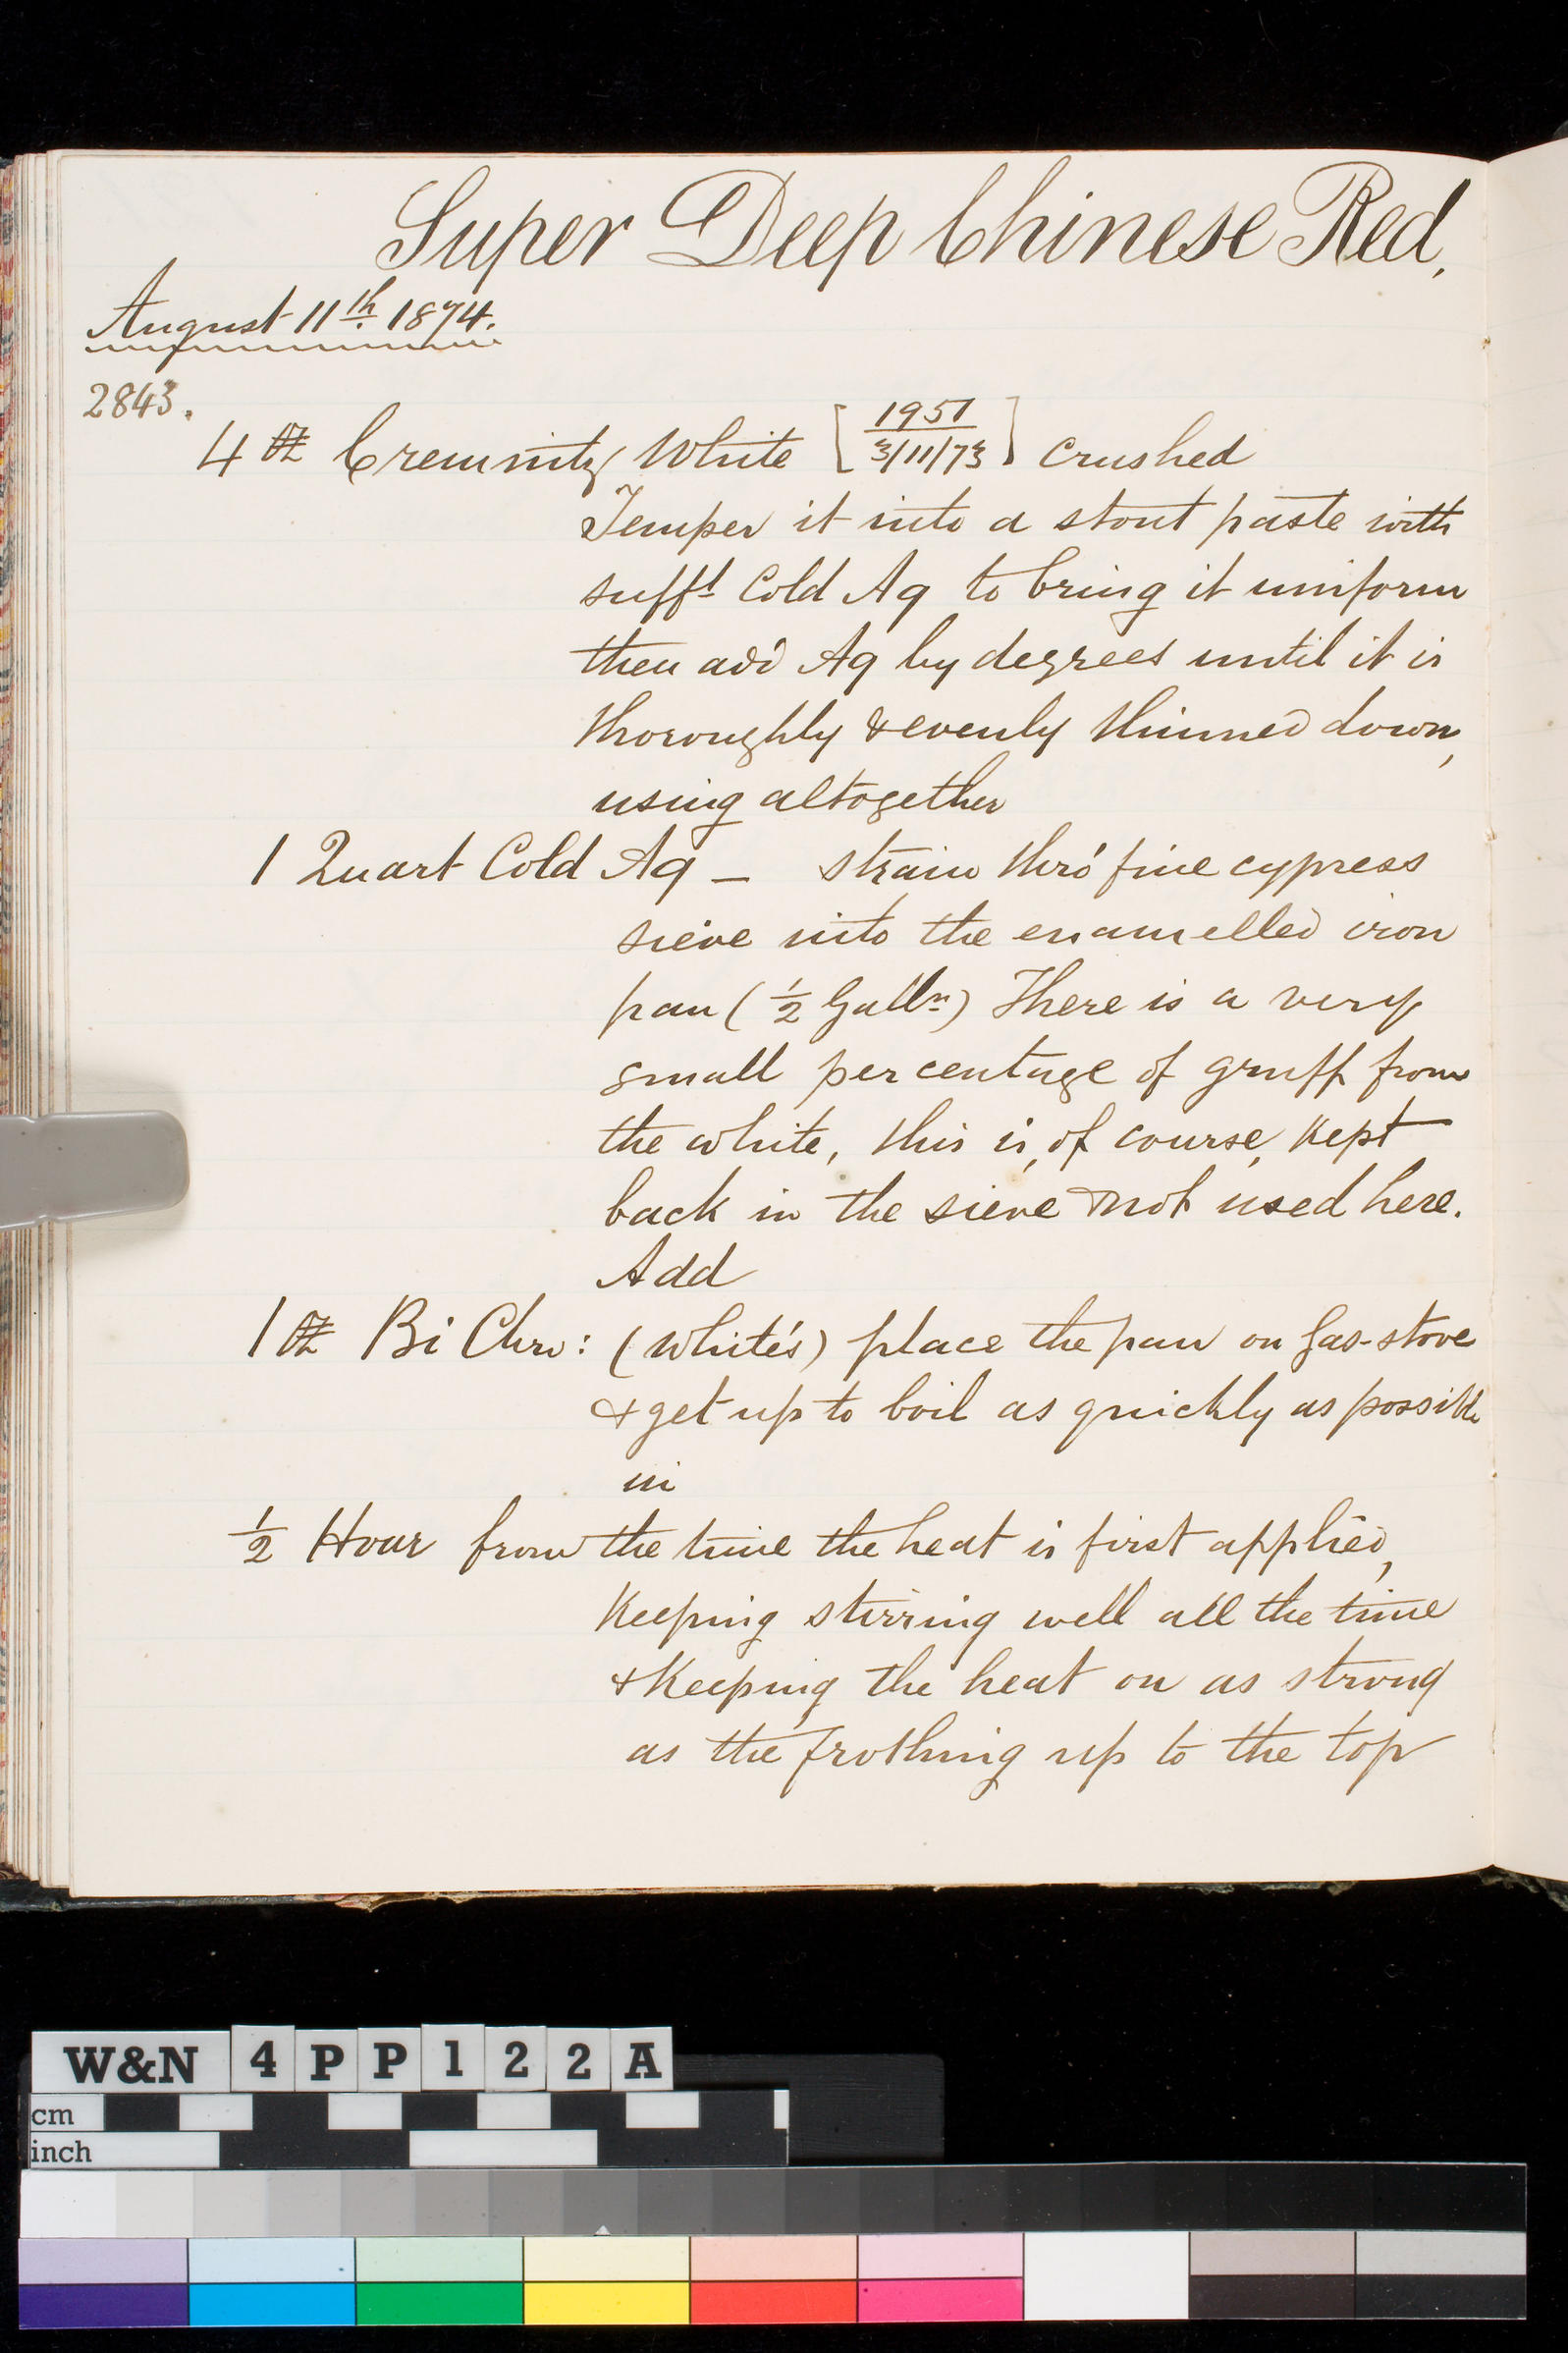 Super Deep Chinese Red,
August 11th. 1874.
2843.
4 lb Cremnitz White [1951 / 3/11/73] crushed
Temper it into a stout paste with
sufft Cold Aq to bring it uniform
then add Aq by degrees until it is
thoroughly & evenly thinned down,
using altogether
1 Quart Cold Aq – strain thro' fine cypress
sieve into the enamelled iron
pan (½ Galln) There is a very
small percentage of gruff from
the white, this is, of course, kept
back in the sieve & not used here.
Add
1 lb Bi Chro: (White's) place the pan on Gas-stove
& get up to boil as quickly as possible
in
½ Hour from the time the heat is first applied,
Keeping stirring well all the time
& Keeping the heat on as strong
as the frothing up to the top
W&N 4PP122A
cm
inch